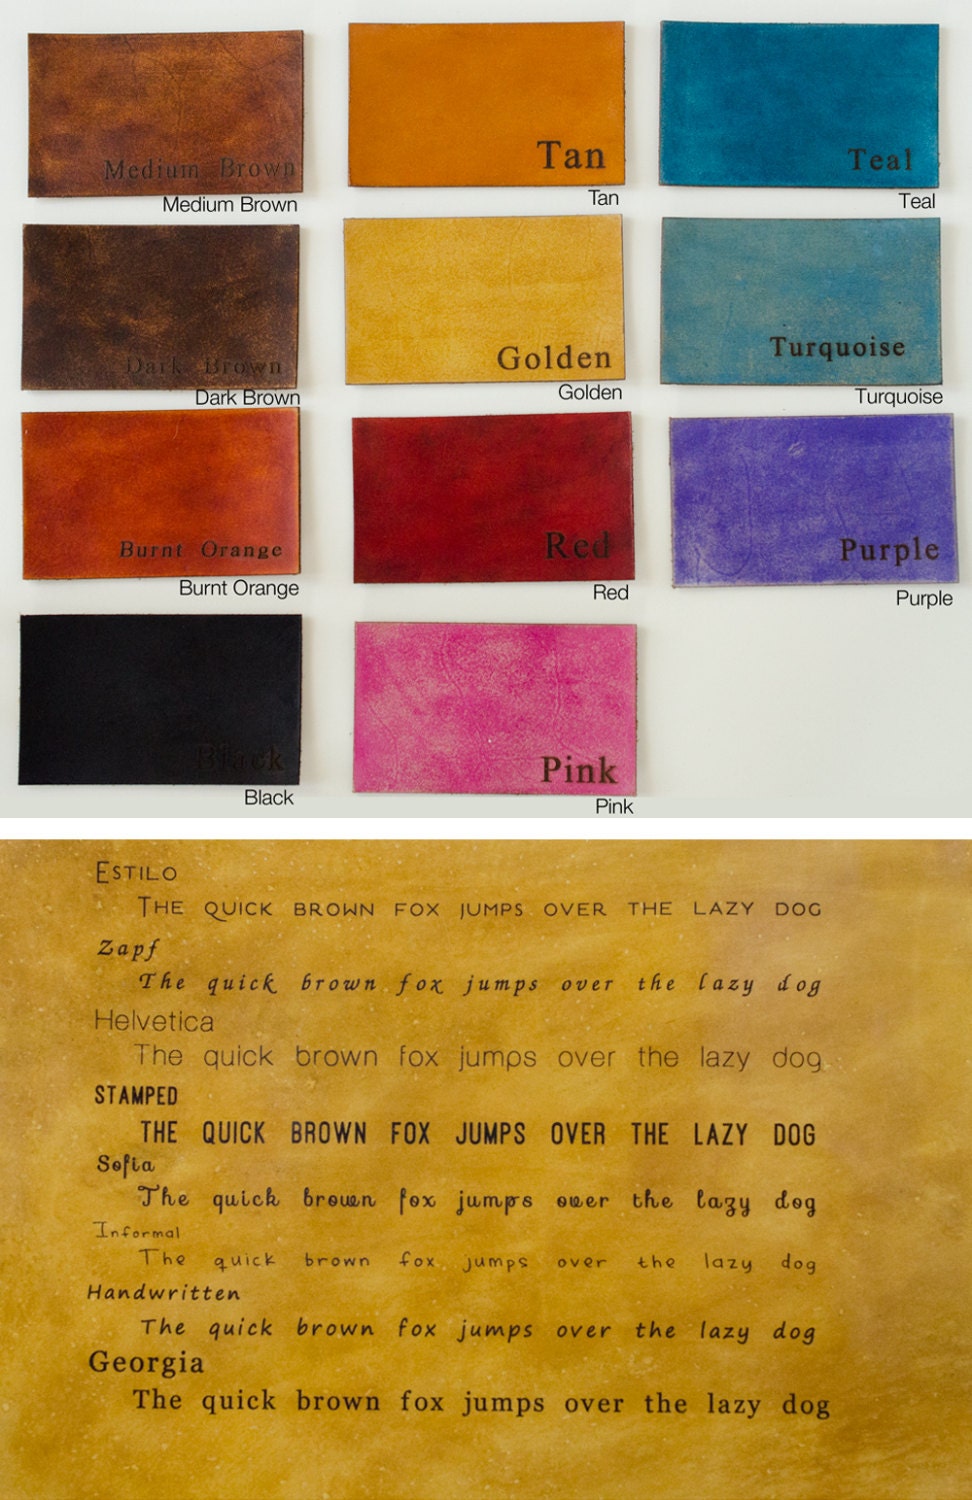 Medium Brown
Medium Brown
Tan
Tan
Teal
Teal
Dark Brown
Dark Brown
Golden
Golden
Turquoise
Turquoise
Burnt Orange
Burnt Orange
Red
Red
Purple
Purple
Black
Black
Pink
Pink
ESTILO
THE QUICK BROWN FOX JUMPS OVER THE LAZY DOG
Zapf
The quick brown fox jumps over the lazy dog
Helvetica
The quick brown fox jumps over the lazy dog
STAMPED
THE QUICK BROWN FOX JUMPS OVER THE LAZY DOG
Sofia
The quick brown fox jumps over the lazy dog
Informal
The quick brown fox jumps over the lazy dog
Handwritten
The quick brown fox jumps over the lazy dog
Georgia
The quick brown fox jumps over the lazy dog